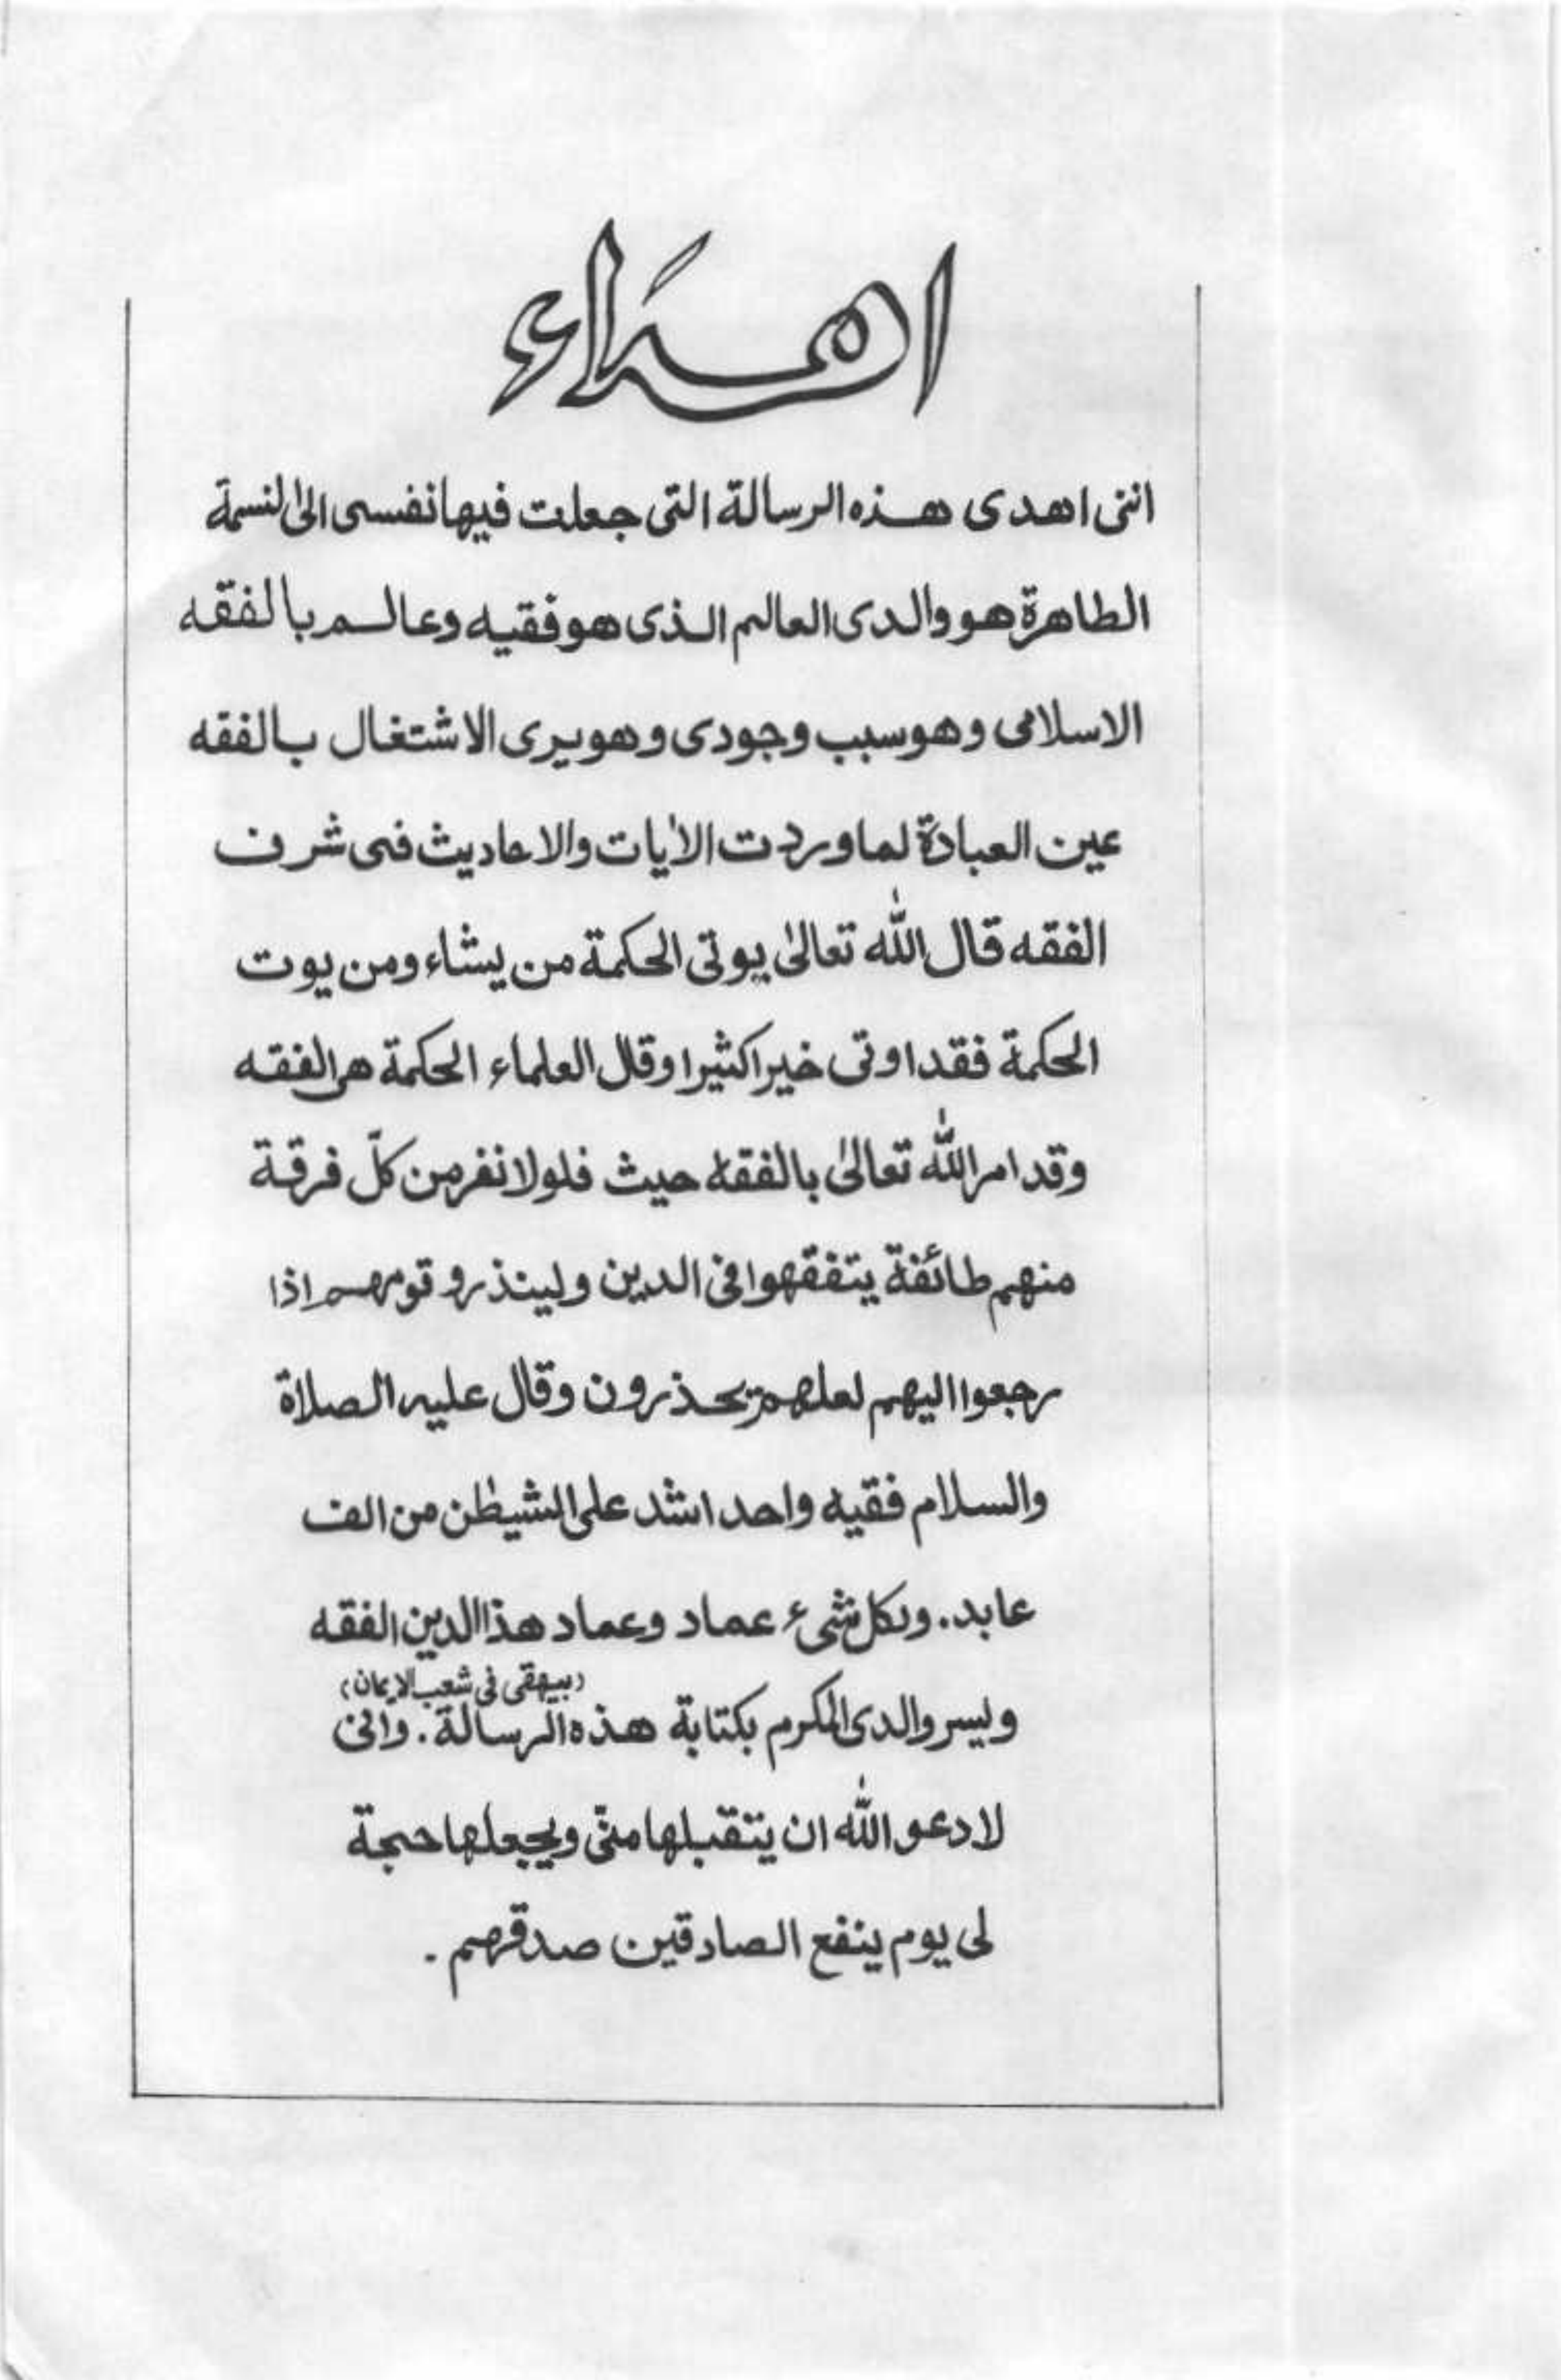 اهدَاء
اننى اهدى هذه الرسالة التى جعلت فيها نفسى الى لنسمة
الطاهرة هو والدى العالم الذى هو فقيه وعالم بالفقه
الاسلامى وهو سبب وجودى وهو يرى الاشتغال بالفقه
عين العبادة لما وردت الأيات والاحاديث فى شرف
الفقه قال الله تعالىٰ يوتى الحكمة من يشاء ومن يوت
الحكمة فقد اوتى خيرا كثيرا وقال العلماء الحكمة هى الفقه
وقد امر الله تعالىٰ بالفقه حيث فلولا نفر من كلّ فرقة
منهم طائفة يتفقهوا فى الدين ولينذرو قومهم اذا
رجعوا اليهم لعلهم يحذرون وقال عليه الصلاة
والسلام فقيه واحد اشد على الشيطٰن من الف
عابد. ولكل شىء عماد وعماد هذا الدين الفقه
(بيهقى فى شعب الايمان)
وليسر والدى المكرم بكتابة هذه الرسالة. وانى
لادعو الله ان يتقبلها منى ويجعلها حجة
لى يوم ينفع الصادقين صدقهم.